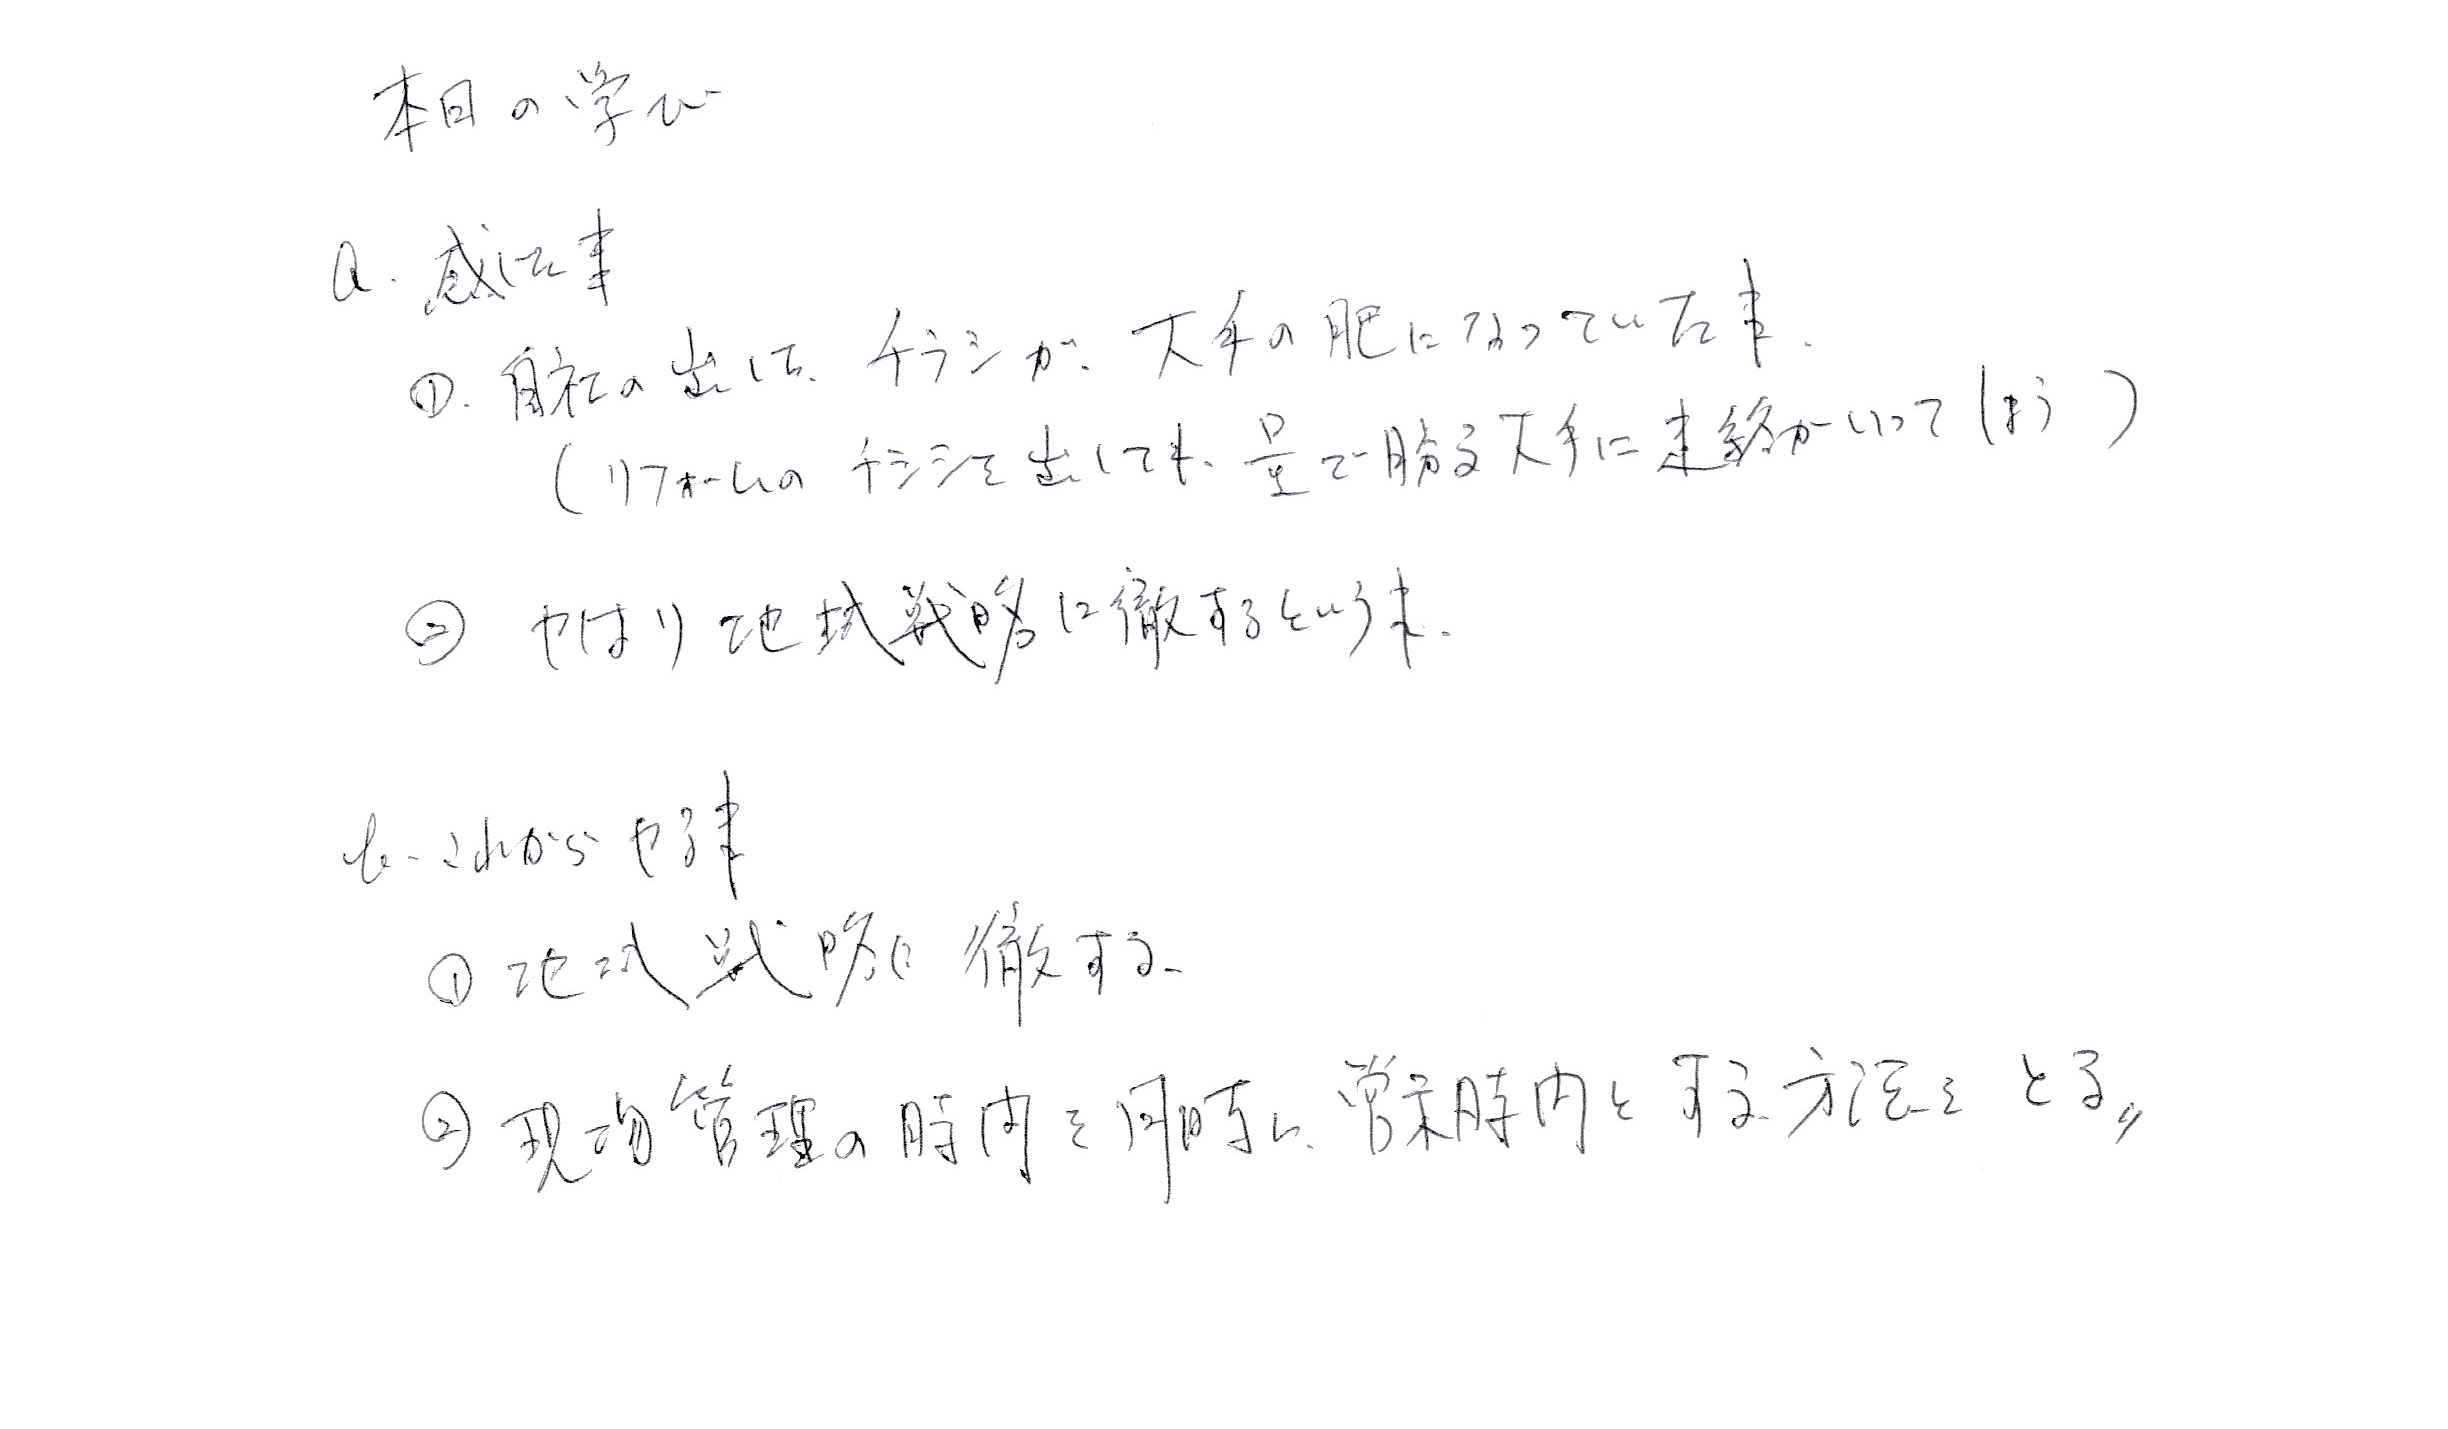 本日の学び
a. 感じた事
①. 自社の出した、チラシが、大手の肥になっていた事.
(リフォームのチラシを出しても、量で勝る大手に連絡がいってしまう)
② やはり地域戦略に徹するという事.
b. これからやる事
① 地域戦略に徹する.
② 現場管理の時間を同時に、営業時間とする方法をとる〃